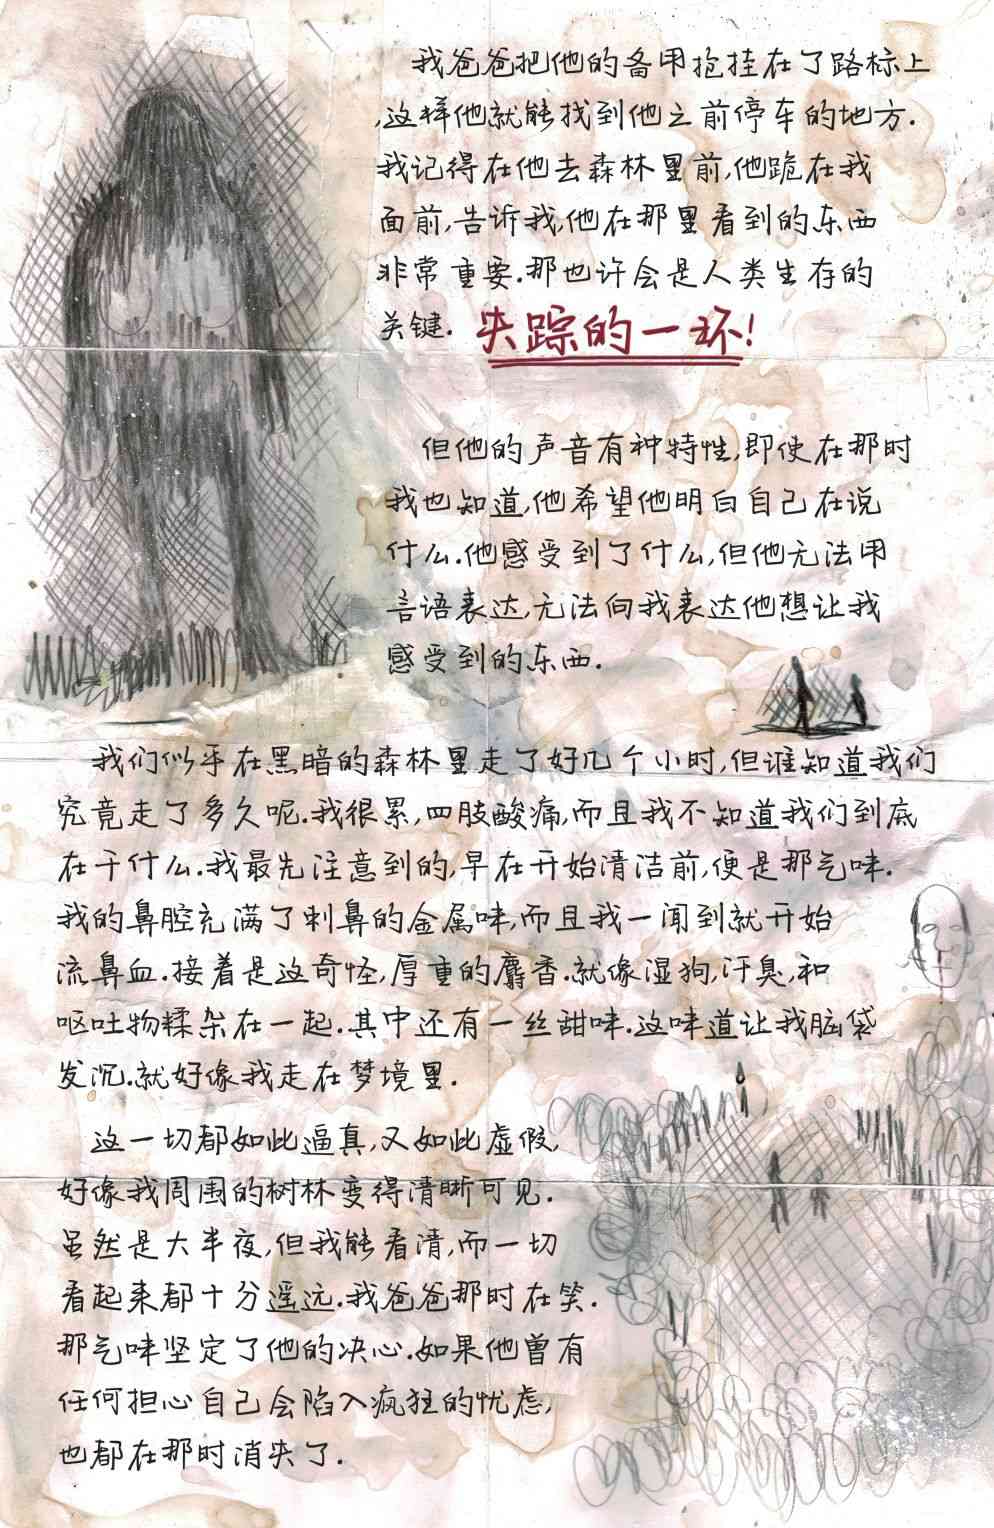 我爸爸把他的备用抱挂在了路标上
,这样他就能找到他之前停车的地方.
我记得在他去森林里前,他跪在我
面前,告诉我,他在那里看到的东西
非常重要.那也许会是人类生存的
关键. 失踪的一环!
但他的声音有种特性,即使在那时
我也知道,他希望他明白自己在说
什么.他感受到了什么,但他无法用
言语表达,无法向我表达他想让我
感受到的东西.
我们似乎在黑暗的森林里走了好几个小时,但谁知道我们
究竟走了多久呢.我很累,四肢酸痛,而且我不知道我们到底
在干什么.我最先注意到的,早在开始清洁前,便是那气味.
我的鼻腔充满了刺鼻的金属味,而且我一闻到就开始
流鼻血.接着是这奇怪,厚重的麝香.就像湿狗,汗臭,和
呕吐物糅杂在一起.其中还有一丝甜味.这味道让我脑袋
发沉.就好像我走在梦境里.
这一切都如此逼真,又如此虚假,
好像我周围的树林变得清晰可见.
虽然是大半夜,但我能看清,而一切
看起来都十分遥远.我爸爸那时在笑.
那气味坚定了他的决心.如果他曾有
任何担心自己会陷入疯狂的忧虑,
也都在那时消失了.